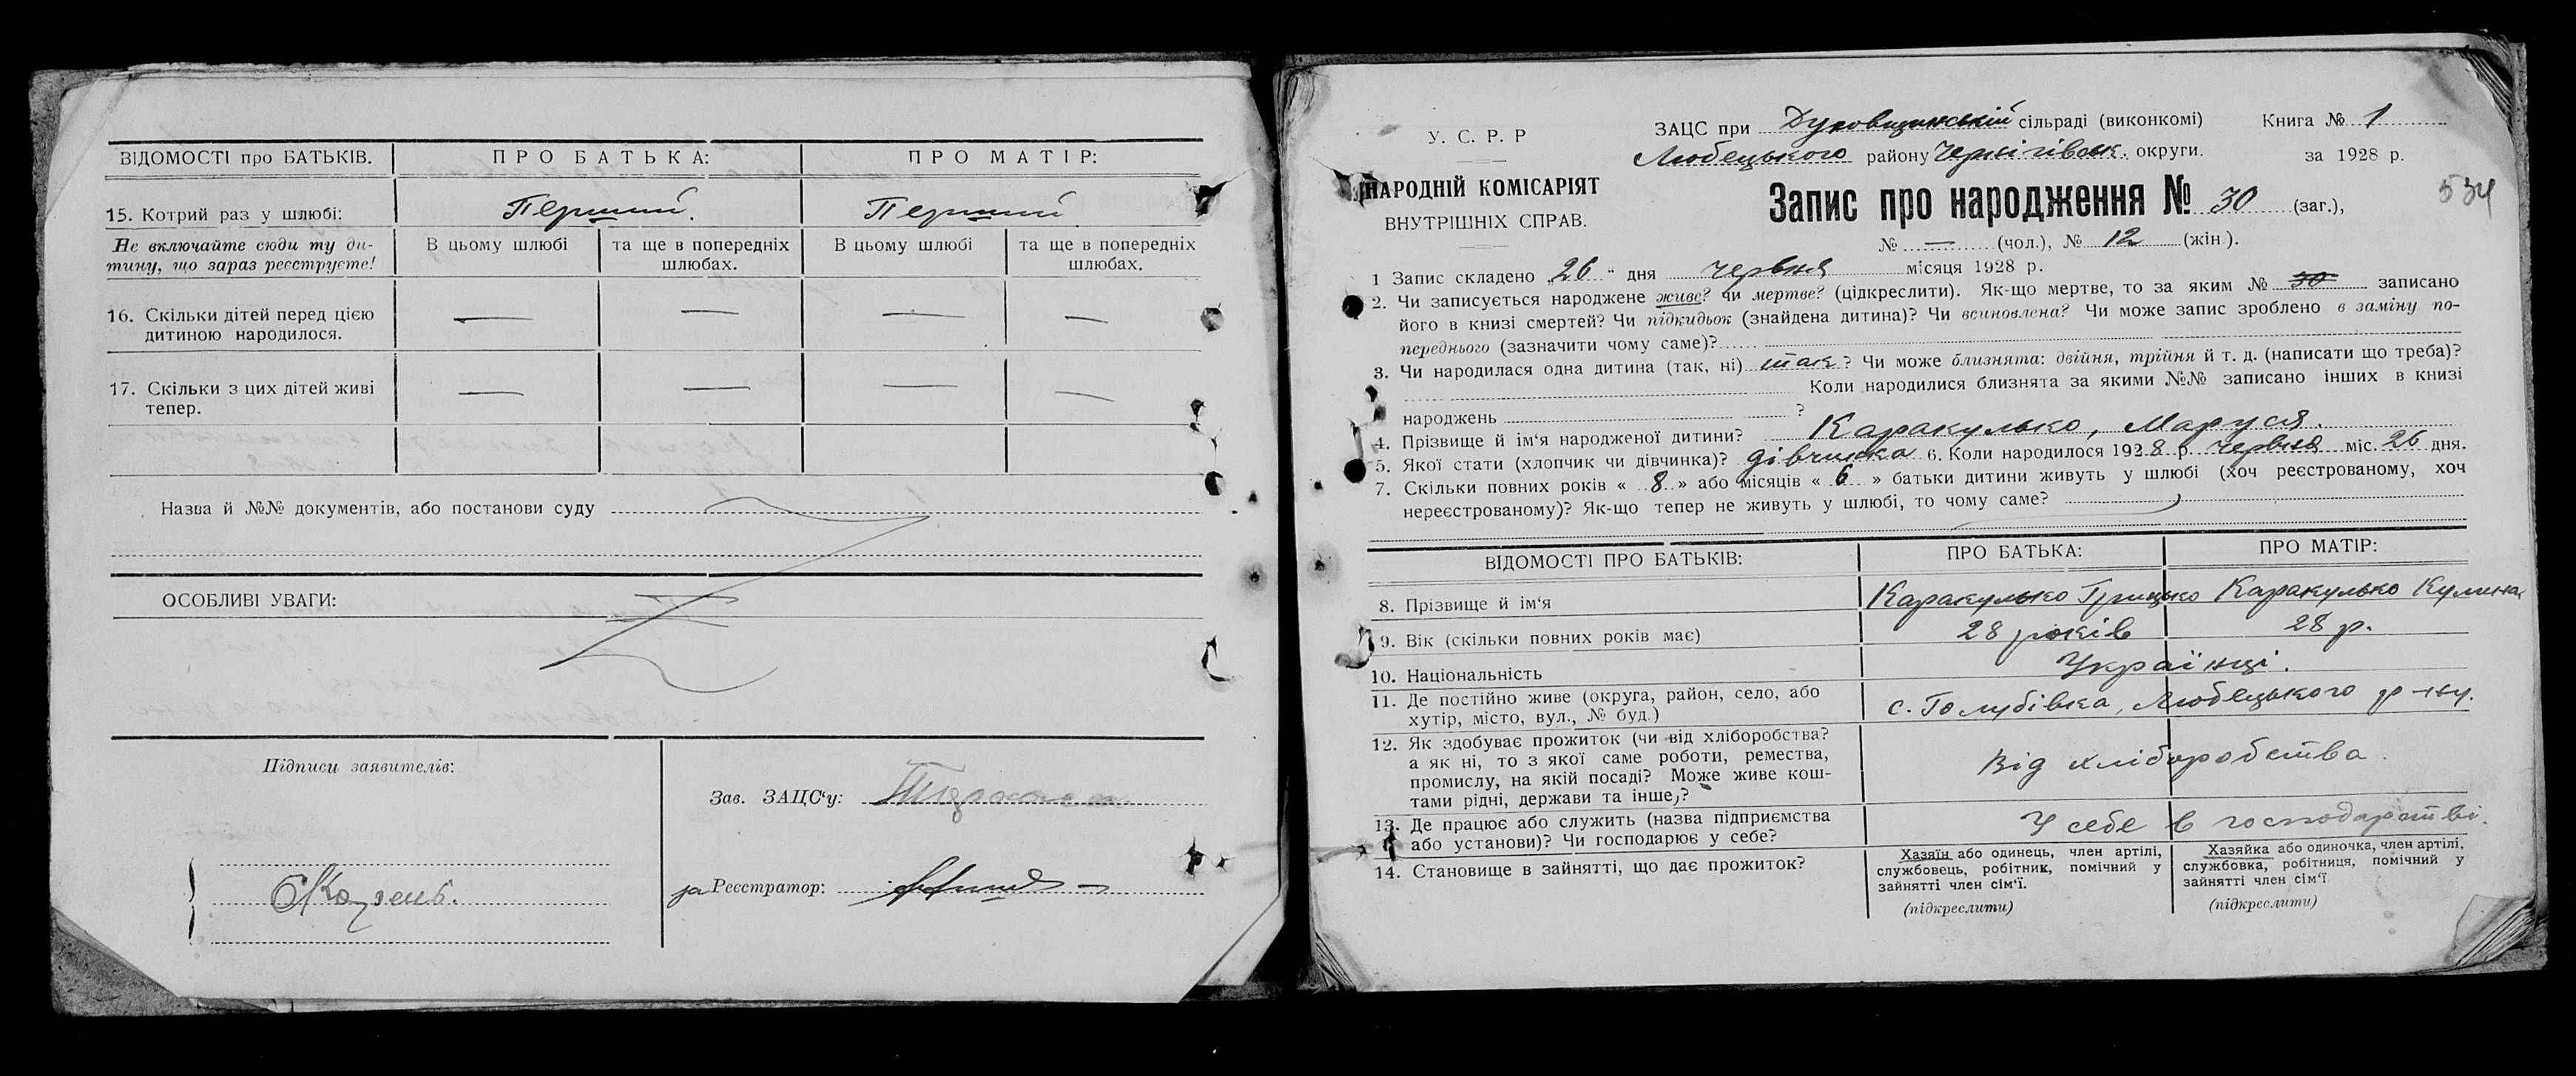 ВІДОМОСТІ про БАТЬКІВ. ПРО БАТЬКА: ПРО МАТІР:
15. Котрий раз у шлюбі: Перший. Перший
Не включайте сюди ту ди-
тину, що зараз реєструєте!
В цьому шлюбі та ще в попередніх шлюбах. В цьому шлюбі та ще в попередніх шлюбах.
16. Скільки дітей перед цією — — — —
дитиною народилося.
17. Скільки з цих дітей живі — — — —
тепер.
Назва й №№ документів, або постанови суду
ОСОБЛИВІ УВАГИ:
Підписи заявителів:
Зав. ЗАЦС‘у:
за Реєстратор:
У. С. Р. Р
НАРОДНІЙ КОМІСАРІЯТ
ВНУТРІШНІХ СПРАВ.
ЗАЦС при Духовщинській сільраді (виконкомі)
Любецького району Чернігівськ. округи.
Книга № 1
за 1928 р.
534
Запис про народження № 30 (заг.),
№ — (чол.), № 12 (жін.).
1 Запис складено „26“ дня червня місяця 1928 р.
2. Чи записується народжене живе? чи мертве? (цідкреслити). Як-що мертве, то за яким № 30 записано
його в книзі смертей? Чи підкидьок (знайдена дитина)? Чи всиновлена? Чи може запис зроблено в заміну по-
переднього (зазначити чому саме)?
3. Чи народилася одна дитина (так, ні) так? Чи може близнята: двійня, трійня й т. д. (написати що треба)?
Коли народилися близнята за якими №№ записано інших в книзі
народжень ?
4. Прізвище й ім‘я народженої дитини? Каракулько, Маруся.
5. Якої стати (хлопчик чи дівчинка)? дівчинка 6. Коли народилося 1928 р. червня міс. 26 дня.
7. Скільки повних років « 8 » або місяців « 6 » батьки дитини живуть у шлюбі (хоч реєстрованому, хоч
нереєстрованому)? Як-що тепер не живуть у шлюбі, то чому саме?
ВІДОМОСТІ ПРО БАТЬКІВ: ПРО БАТЬКА: ПРО МАТІР:
8. Прізвище й ім‘я Каракулько Грицько Каракулько Кулина
9. Вік (скільки повних років має) 28 років 28 р.
10. Національність Українці.
11. Де постійно живе (округа, район, село, або
хутір, місто, вул., № буд.) с. Голубівка, Любецького р-ну.
12. Як здобуває прожиток (чи від хліборобства?
а як ні, то з якої саме роботи, ремества,
промислу, на якій посаді? Може живе кош-
тами рідні, держави та інше)?
Від хліборобства.
13. Де працює або служить (назва підприємства
або установи)? Чи господарює у себе?
У себе в господарстві.
14. Становище в зайнятті, що дає прожиток?
Хазяїн або одинець, член артілі,
службовець, робітник, помічний у
зайнятті член сім‘ї.
(підкреслити)
Хазяйка або одиночка, член артілі,
службовка, робітниця, помічний у
зайнятті член сім‘ї
(підкреслити)